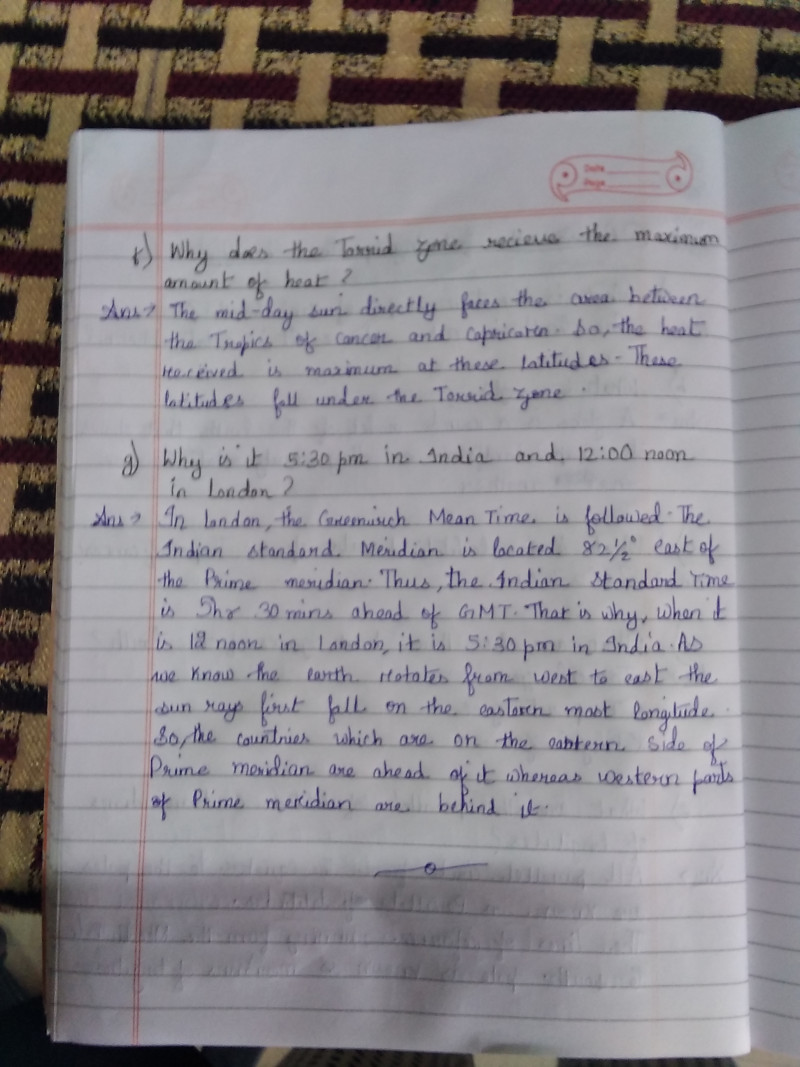 Date
Page
f) Why does the Torrid zone recieve the maximum
amount of heat ?
Ans → The mid-day sun directly faces the area between
the Tropics of Cancer and Capricorn. So, the heat
received is maximum at these latitudes. These
latitudes fall under the Torrid zone.
g) Why is it 5:30 pm in India and 12:00 noon
in London ?
Ans → In London, the Greenwich Mean Time is followed. The
Indian Standard Meridian is located 82½° east of
the Prime meridian. Thus, the Indian Standard Time
is 5hr 30 mins ahead of GMT. That is why, when it
is 12 noon in London, it is 5:30 pm in India. As
we know the earth rotates from west to east the
sun rays first fall on the eastern most longitude.
So, the countries which are on the eastern side of
Prime meridian are ahead of it whereas western parts
of Prime meridian are behind it.